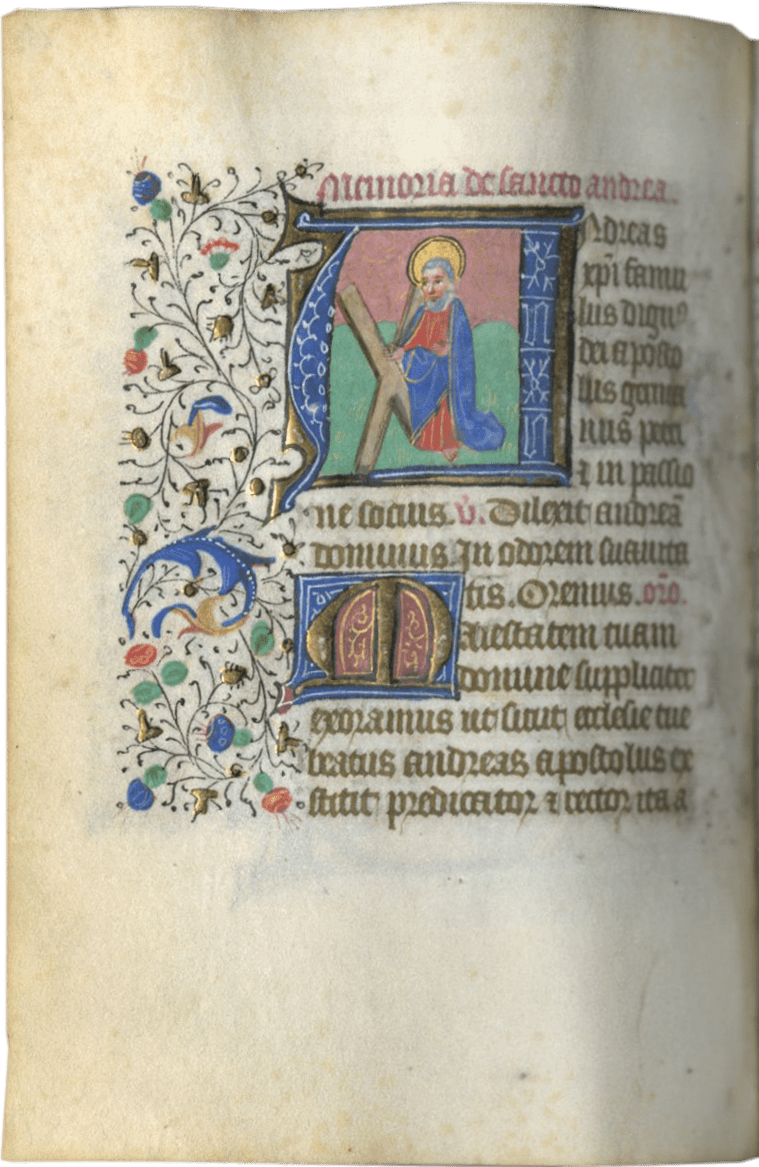 Memoria de sancto andrea.
Andreas
xp̄i famu
lus dignꝰ
dei aposto
lus germa
nus petri
⁊ in passio
ne socius. v̄. Dilexit andreā
dominus In odorem suauita
tis. Oremus. or̄o.
Maiestatem tuam
domine suppliciter
exoramus ut sicut ecclesie tue
beatus andreas apostolus ex
stitit predicator ⁊ rector ita a